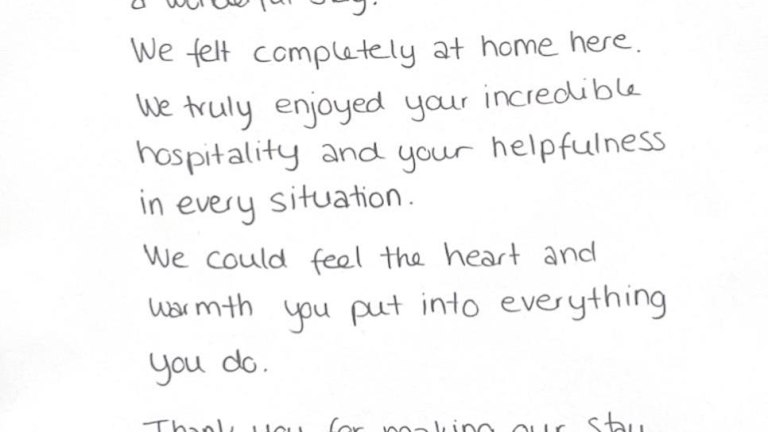 a wonderful stay.
We felt completely at home here.
We truly enjoyed your incredible
hospitality and your helpfulness
in every situation.
We could feel the heart and
warmth you put into everything
you do.
Thank you for making our stay